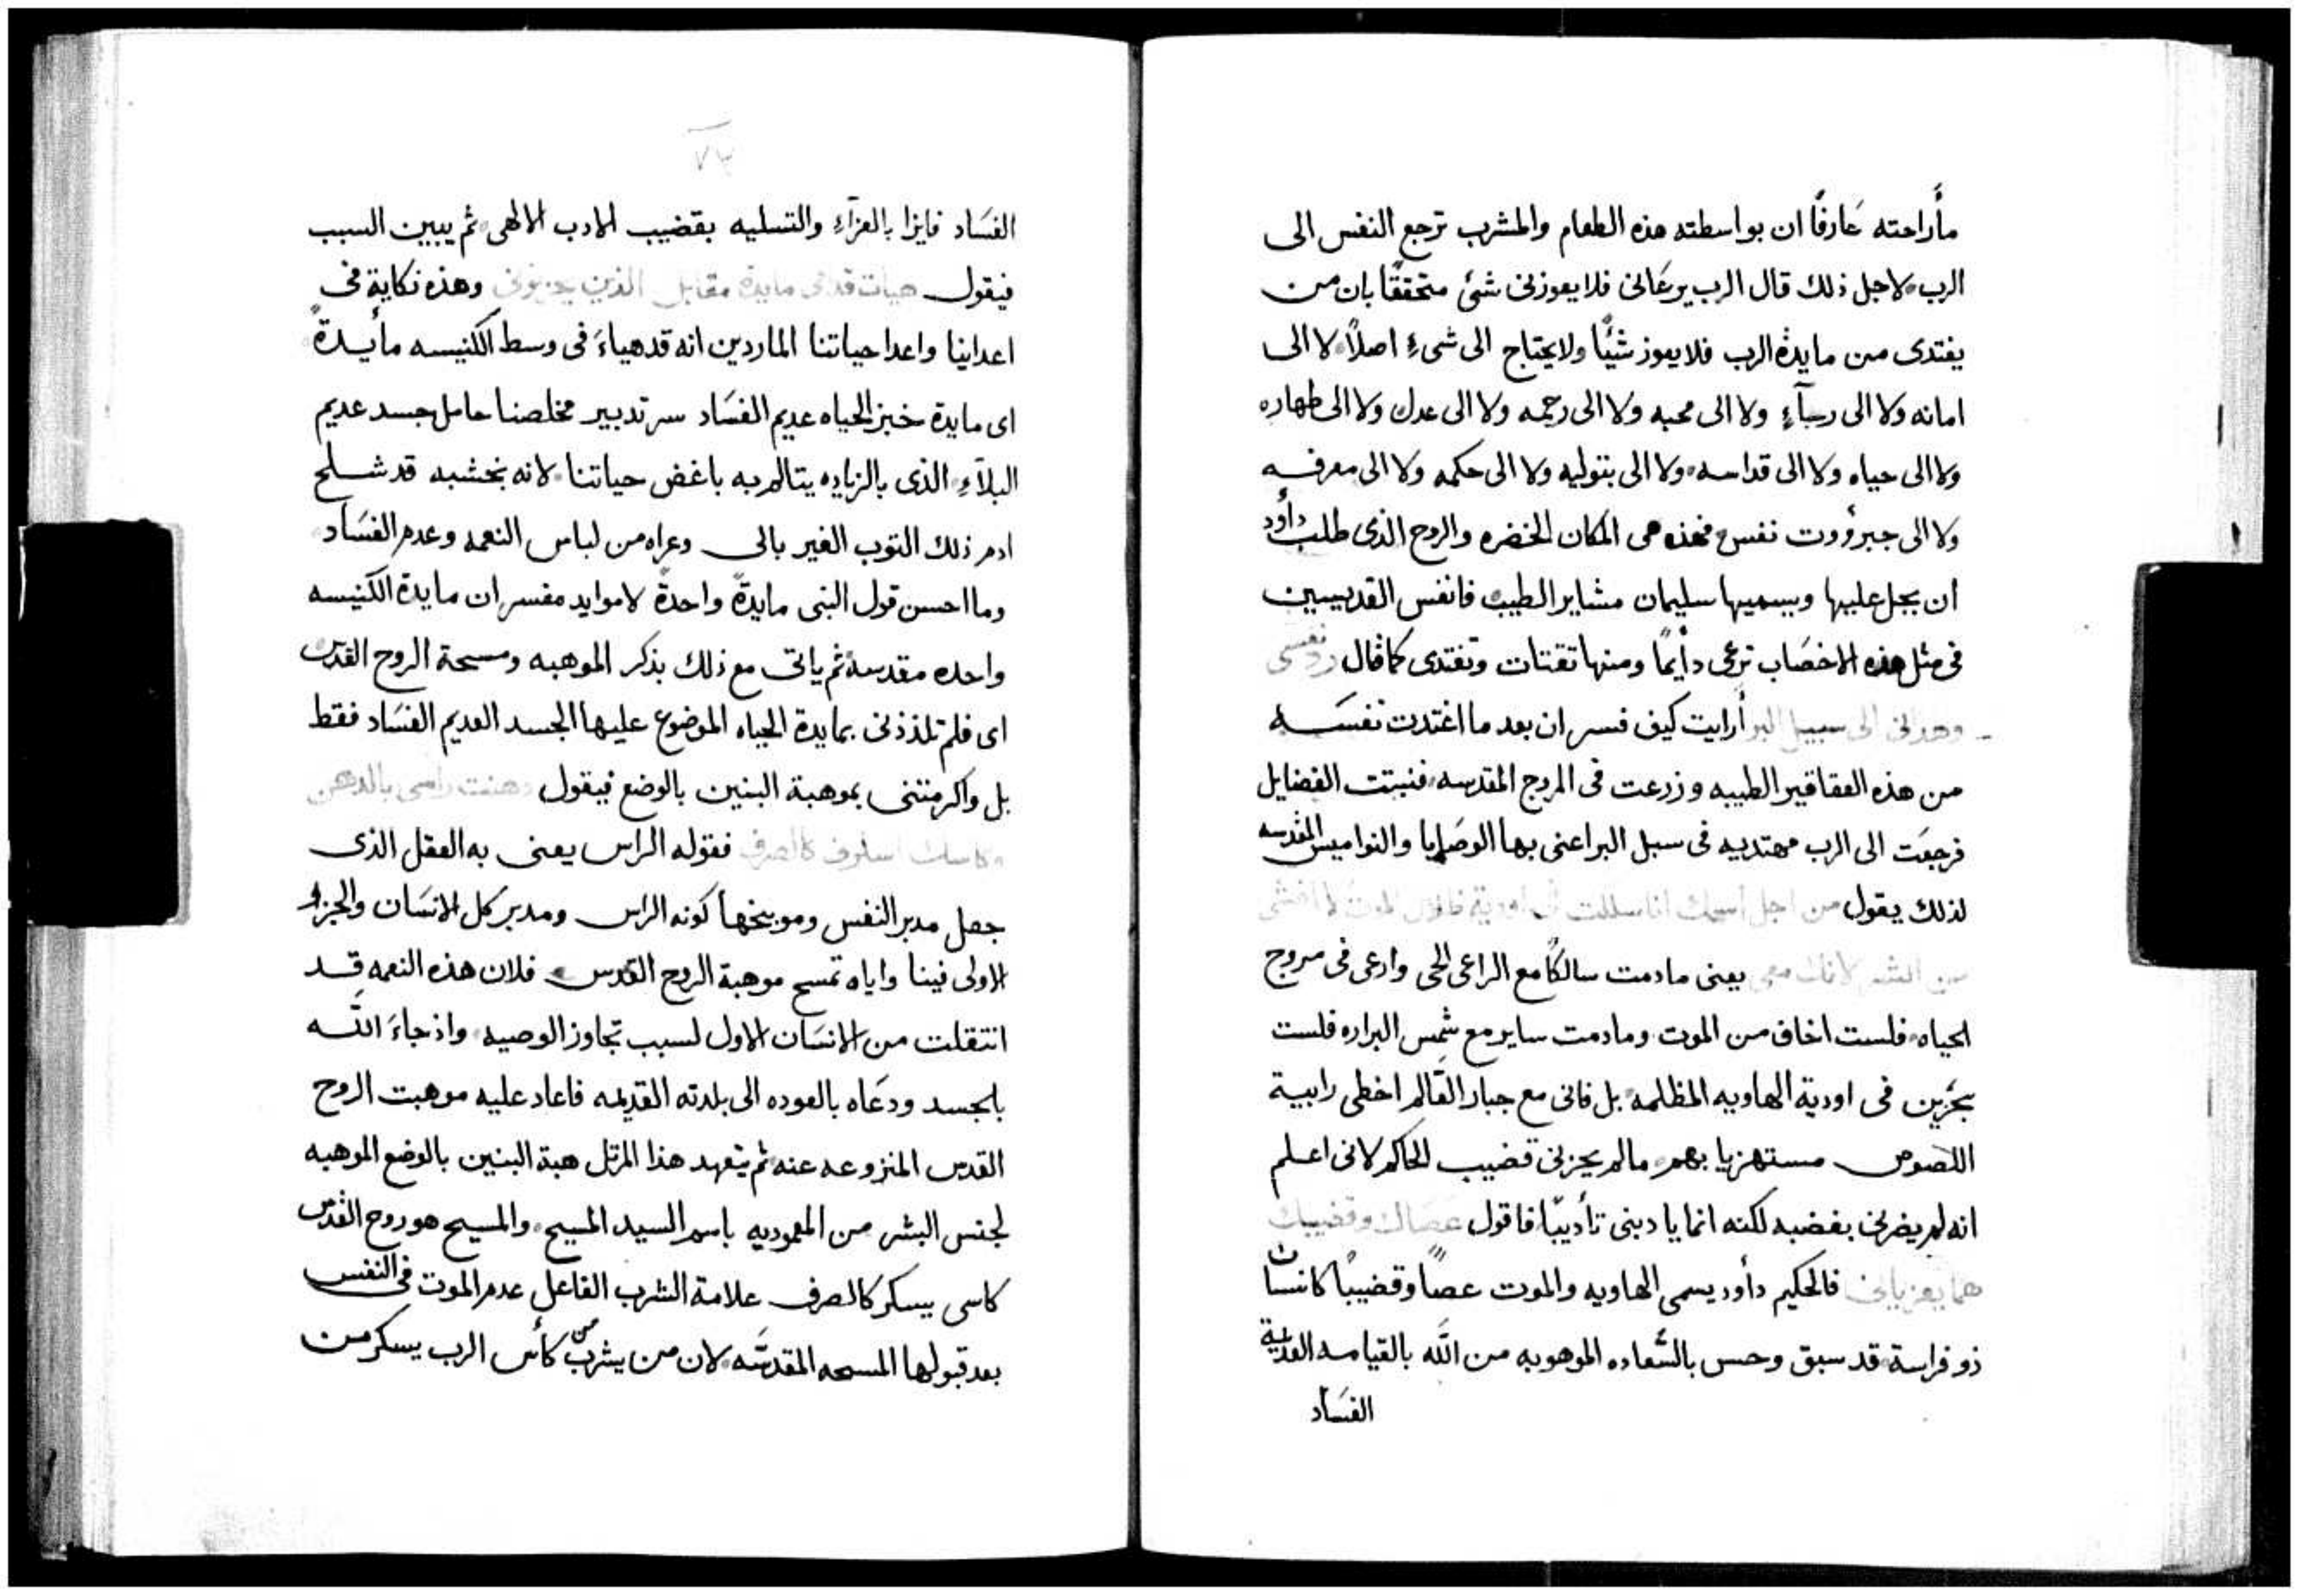 مأراحته عَارفًا ان بواسطته هذه الطعام والمشرب ترجع النفس الى
الرب لاجل ذلك قال الرب يرعَانى فلا يعوزنى شئ متحققًا بان من
يغتدى من مايدة الرب فلا يعوز شيًا ولا يحتاج الى شىءٍ اصلاً لا الى
امانه ولا الى رجآءٍ ولا الى محبه ولا الى رحمه ولا الى عدل ولا الى طهاره
ولا الى حياه ولا الى قداسه ولا الى بتوليه ولا الى حكمه ولا الى معرفه
ولا الى جبرؤوت نفس فهذه هى المكان الخضره والروح الذى طلب دأود
ان يحل عليها ويسميها سليمان مشاير الطيب فانفس القديسين
فى مثل هذه الاخصَاب ترعى دأيمًا ومنها تقتات وتغتدى كما قال رد نفسى
وهدانى الى سبيل البر أرايت كيف فسر ان بعد ما اغتدت نفسَه
من هذه العقاقير الطيبه وزرعت فى المروج المقدسه فنبتت الفضايل
فرجعَت الى الرب مهتديه فى سبل البر اعنى بها الوصَايا والنواميس المقدسه
لذلك يقول من اجل اسمك انا سللت فى اودية ظلال الموت لا اخشى
من الشر لانك معى يعنى مادمت سالكًا مع الراعى الحى وارعى فى مروج
الحياه فلست اخاف من الموت ومادمت ساير مع شمس البراره فلست
بحزين فى اودية الهاويه المظلمه بل فانى مع جبار القَالم اخطى رابية
اللصوص مستهزيا بهم مالم يحزنى قضيب الحاكم لانى اعلم
انه لم يضرنى بغضبه لكنه انما يادبنى تأديبًا فاقول عصَاك وقضيبك
هما يعزيانى فالحكيم دأود يسمى الهاويه والموت عصًا وقضيبًا كانسان
ذو فراسة قد سبق وحس بالسَعاده الموهوبه من الله بالقيامه العديمة
الفسَاد
٧٣
الفسَاد فايزا بالعزآءِ والتسليه بقضيب الادب الالهى ثم يبين السبب
فيقول هيات قدامى مايدة مقابل الذين يحزنونى وهذه نكاية فى
اعداينا واعدا حياتنا الماردين انه قد هياءَ فى وسط الكنيسه مأيدةً
اى مايدة خبز الحياه عديم الفسَاد سر تدبير مخلصنا حامل جسد عديم
البلآءِ الذى بالزياده يتالم به باغض حياتنا لانه بخشبه قد شلح
ادم ذلك التوب الغير بالى وعراه من لباس النعمه وعدم الفسَاد
وما احسن قول النبى مايدةً واحدةً لا موايد مفسر ان مايدة الكنيسه
واحده مقدسة ثم ياتى مع ذلك بذكر الموهبه ومسحة الروح القدس
اى فلم تلذذنى بمايدة الحياه الموضوع عليها الجسد العديم الفسَاد فقط
بل واكرمتنى بموهبة البنين بالوضع فيقول دهنت راسى بالدهن
وكاسك اسكرنى كالصرف فقوله الراس يعنى به العقل الذى
جعل مدبر النفس وموبخها كونه الراس ومدبر كل الانسَان والجزو
الاولى فينا واياه تمسح موهبة الروح القدس فلان هذه النعمه قد
انتقلت من الانسَان الاول لسبب تجاوز الوصيه واذ جاءَ الله
بالجسد ودعَاه بالعوده الى بلدته القديمه فاعاد عليه موهبت الروح
القدس المنزوعه عنه ثم يتعهد هذا المرتل هبة البنين بالوضع الموهبه
لجنس البشر من المعموديه باسم السيد المسيح والمسيح هو روح القدس
كاسى يسكر كالصرف علامة الشرب الفاعل عدم الموت فى النفس
بعد قبولها المسحه المقدسَه لان من يشرب من كأس الرب يسكر من